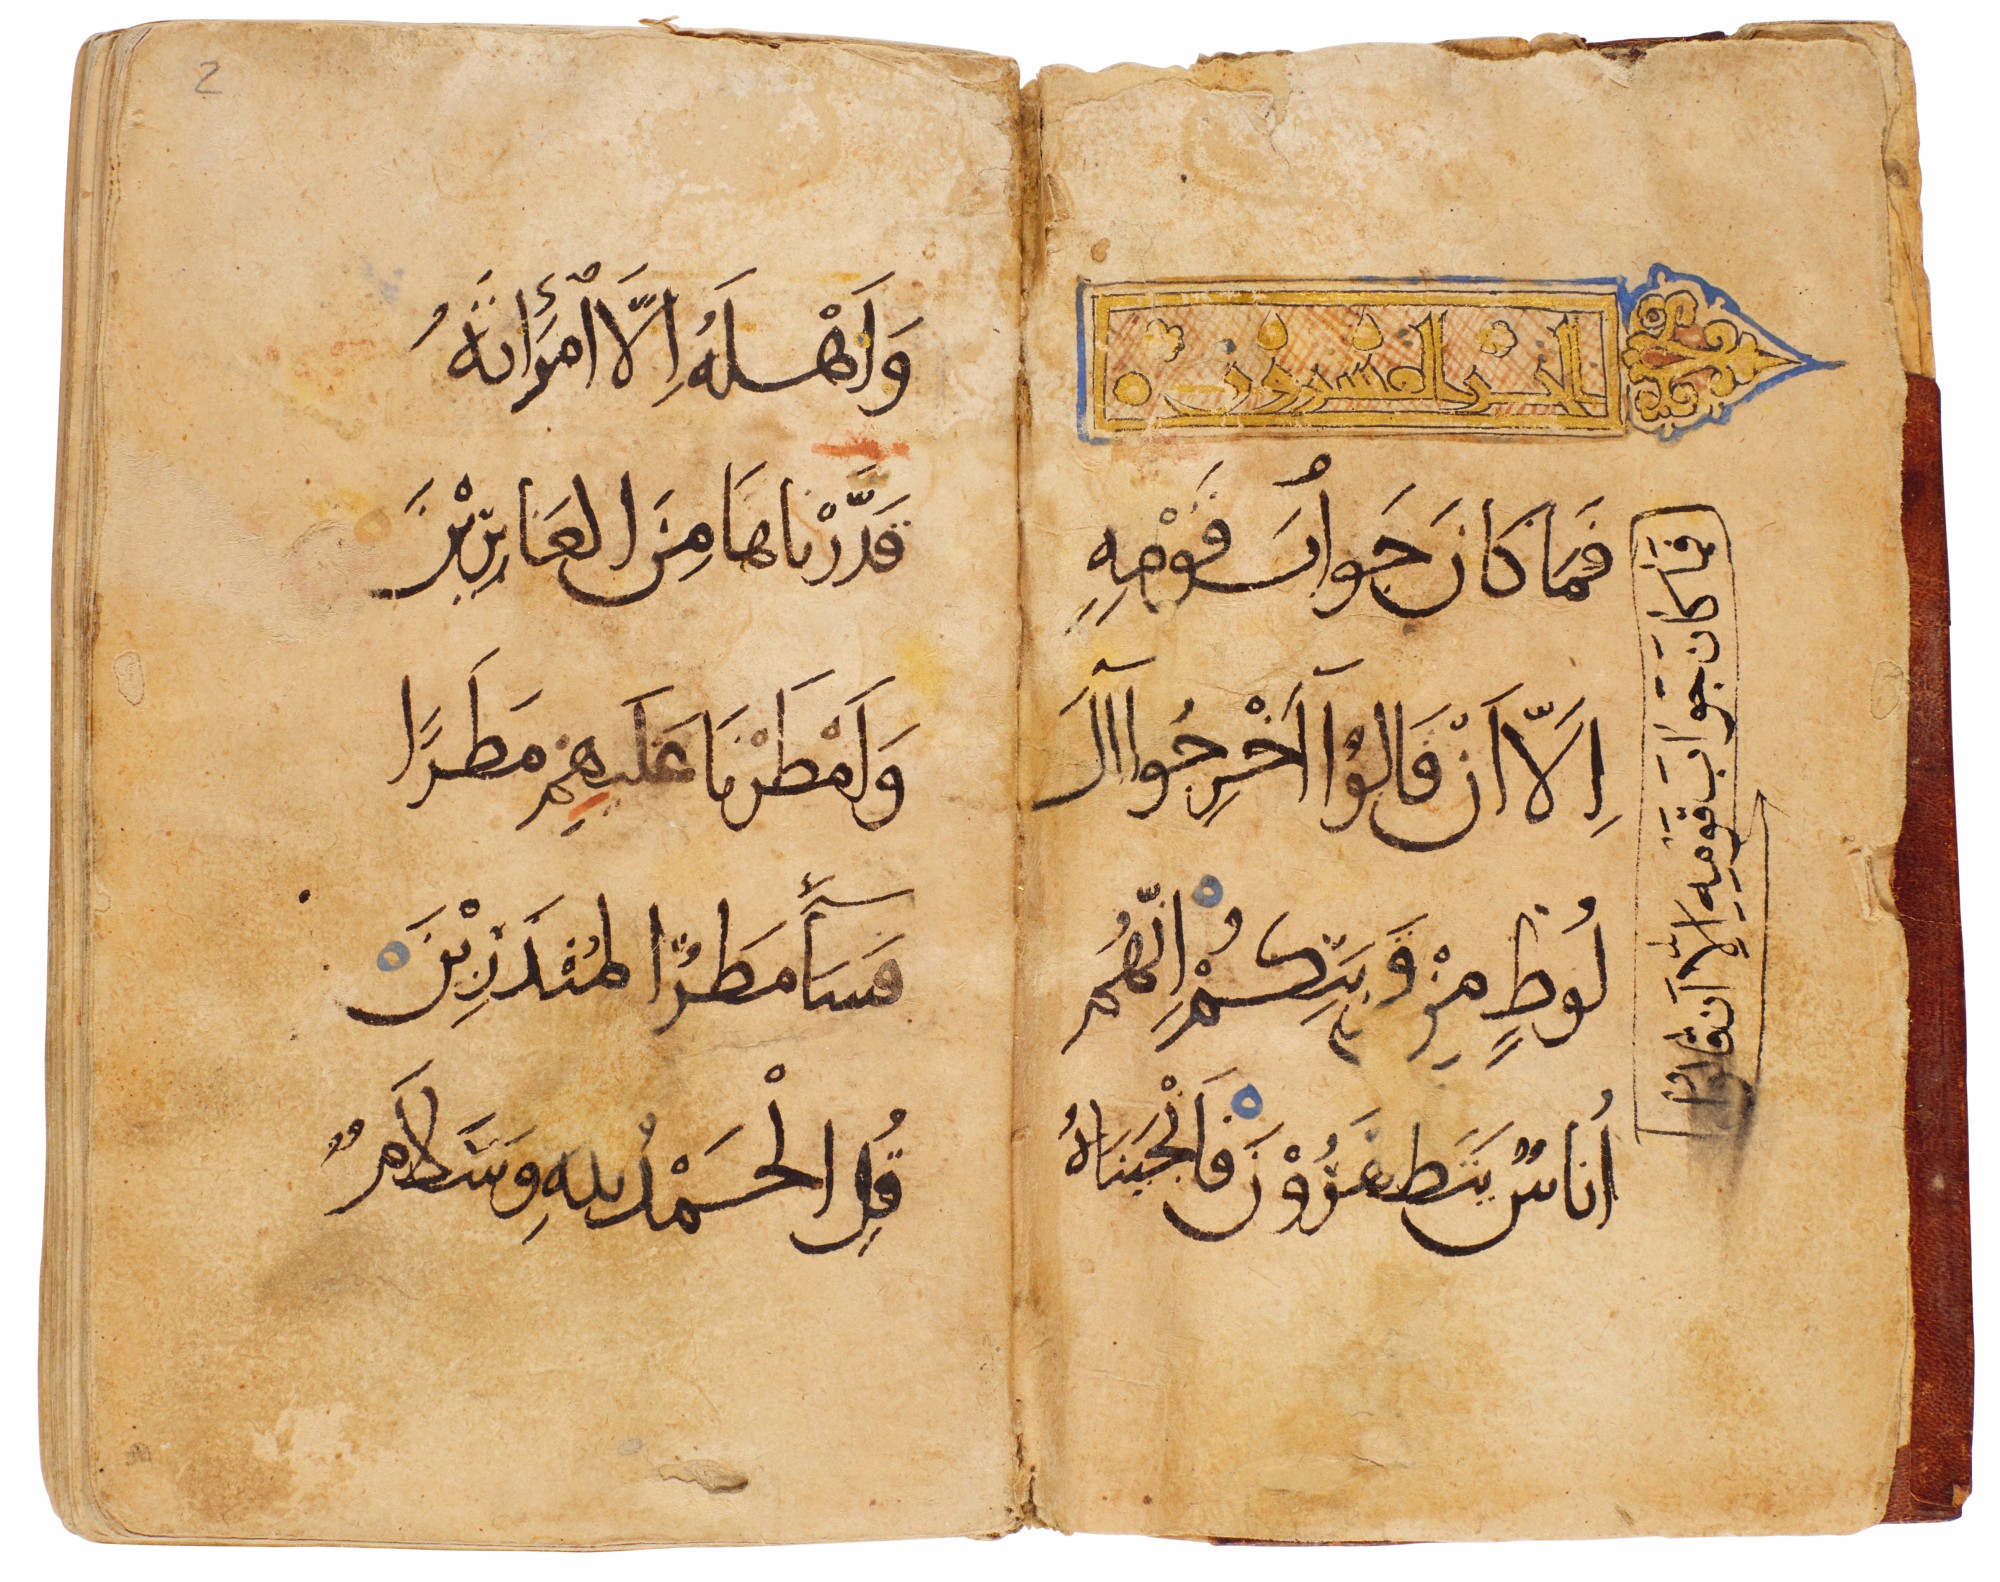 الجزء العشرون
فَمَا كَانَ جَوَابَ قَوْمِهِ
اِلَّا اَنْ قَالُوْا اَخْرِجُوا آلَ
لُوطٍ مِنْ قَرْيَتِكُمْ اِنَّهُمْ
اُنَاسٌ يَتَطَهَّرُوْنَ فَاَنْجَيْنَاهُ
فَمَا كَانَ جَوَابَ قَوْمِهِ اِلَّا اَن قَالُوا
وَاَهْلَهُ اِلَّا امْرَأَتَهُ
قَدَّرْنَاهَا مِنَ الغَابِرِيْنَ
وَاَمْطَرْنَا عَلَيْهِمْ مَطَرًا
فَسَآءَ مَطَرُ المُنْذَرِيْنَ
قُلِ الْحَمْدُ لِلهِ وَسَلَامٌ
2